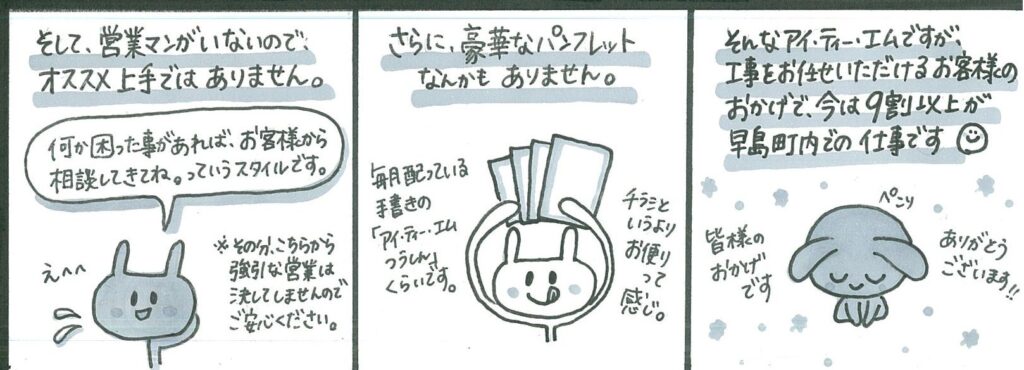 そして、営業マンがいないので、
オススメ上手ではありません。
何か困った事があれば、お客様から
相談してきてね。っていうスタイルです。
えへへ
※その分、こちらから
強引な営業は
決してしませんので
ご安心ください。
さらに、豪華なパンフレット
なんかもありません。
毎月配っている
手書きの
「アイ・ティー・エム
つうしん」
くらいです。
チラシと
いうより
お便り
って
感じ。
そんなアイ・ティー・エムですが、
工事をお任せいただけるお客様の
おかげで、今は9割以上が
早島町内での仕事です
ぺこり
皆様の
おかげ
です
ありがとう
ございます!!